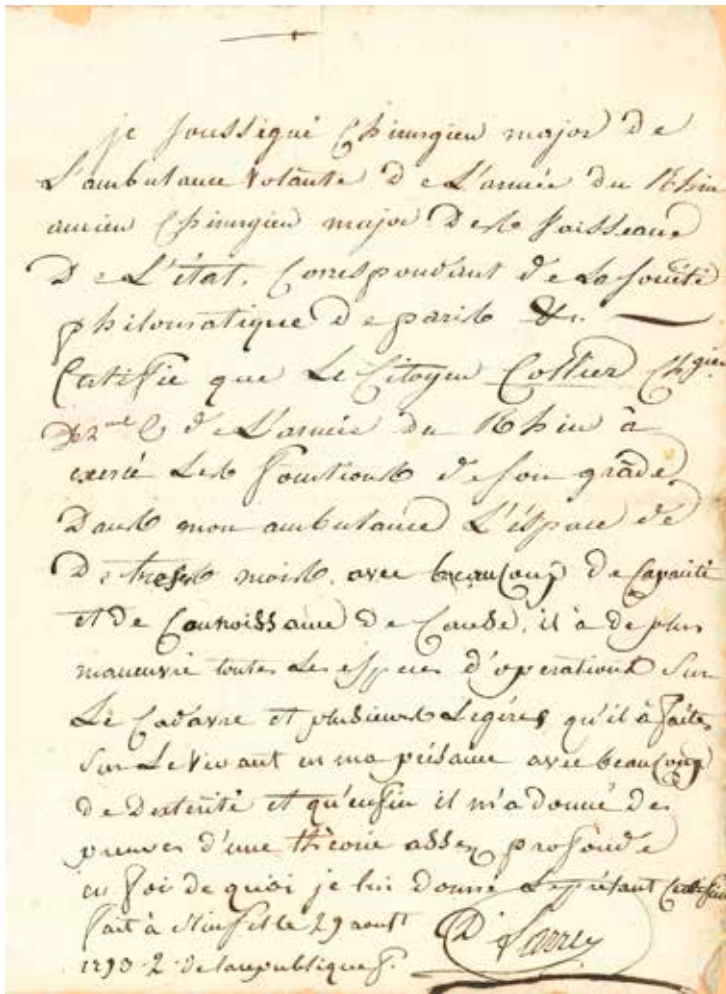 je soussigné Chirurgien major de
L'ambulance volante de L'armée du Rhin
ancien Chirurgien major des vaisseaux
De L'état, Correspondant de La société
philomatique de paris &c.
Certifie que Le Citoyen Collier Chgien
De 2me C de L'armée du Rhin à
exercé Les fonctions de son grade
Dans mon ambulance L'éspace de
De mois, avec beaucoup de Capacité
et de Connoissance de Cause, il à de plus
maneuvré toutes Les especes d'operations sur
Le Cadavre et plusieurs Legéres qu'il à faites
sur Le Vivant en ma présance avec beaucoup
de Dexterité et qu'enfin il m'a donné des
preuves d'une théorie assez profonde
en foi de quoi je lui donne Le présant
fait à le 29 aoust
1793 - 2 - de la republique f. D. Larrey